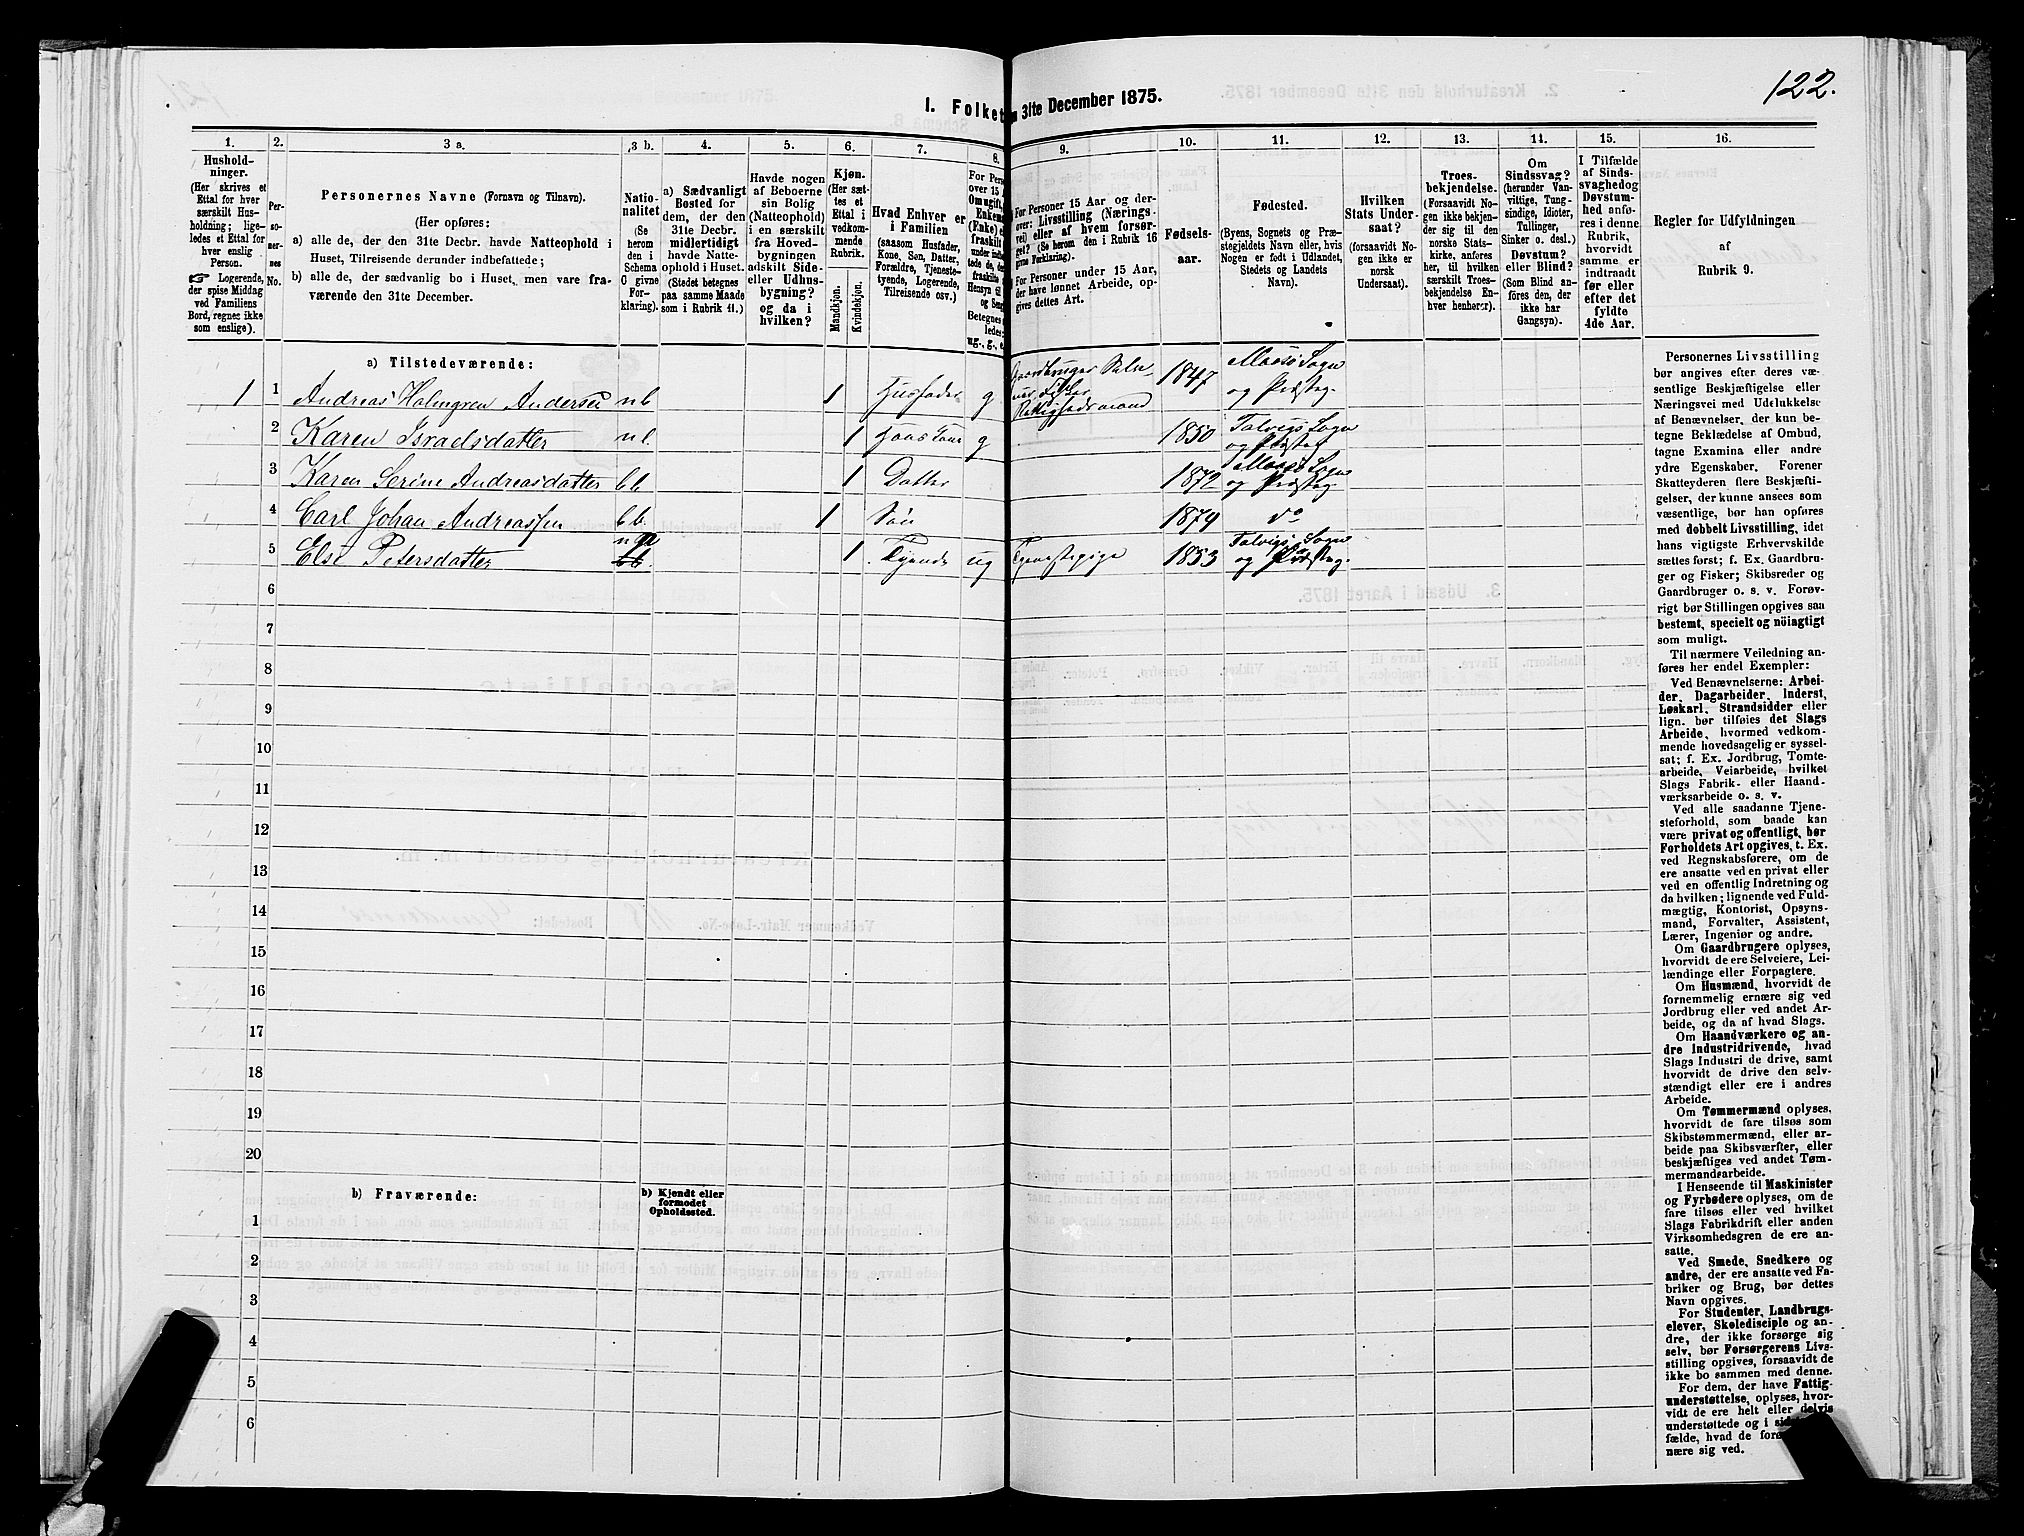 122.
I. Folket
n 31te December 1875.
1. 2. 3 a. 3 b. 4. 5. 6. 7. 8. 9. 10. 11. 12. 13. 14. 15. 16.
Hushold-
ninger.
(Her skrives et
Ettal for hver
særskilt Hus-
holdning; lige-
ledes et Ettal for
hver enslig
Person.
☞ Logerende,
der spise Middag
ved Familiens
Bord, regnes ikke
som enslige).
Per-
so-
ner-
nes
No.
Personernes Navne (Fornavn og Tilnavn).
(Her opføres:
a) alle de, der den 31te Decbr. havde Natteophold i
Huset, Tilreisende derunder indbefattede;
b) alle de, der sædvanlig bo i Huset, men vare fra-
værende den 31te December.
Natio-
nalitet
(Se
herom
den i
Schema
C givne
For-
klaring).
a) Sædvanligt
Bosted for
dem, der den
31te Decbr.
midlertidigt
havde Natte-
ophold i Huset.
(Stedet betegnes
paa samme Maade
som i Rubrik 11.)
Havde nogen
af Beboerne
sin Bolig
(Natteophold)
i en særskilt
fra Hoved-
bygningen
adskilt Side-
eller Udhus-
bygning?
og da i
hvilken?
Kjøn.
(Her sæt-
tes et
Ettal i
vedkom-
mende
Rubrik.
Mandkjøn.
Kvindekjøn.
Hvad Enhver er
i Familien
(saasom Husfader,
Kone, Søn, Datter,
Forældre, Tjeneste-
tyende, Logerende,
Tilreisende osv.)
For Pers
over 15 A
Omugift,
Enkem
(Enke)
fraskilt
under indb
tede de, de
fraskilte
Hensyn til
og Sen
Betegnes
ledes:
ug-, g-, e
For Personer 15 Aar og der-
over: Livsstilling (Nærings-
vei) eller af hvem forsør-
get? (Se herom den i Rubrik 16
givne Forklaring).
For Personer under 15 Aar,
der have lønnet Arbeide, op-
gives dettes Art.
Fødsels-
aar.
Fødested.
(Byens, Sognets og Præ-
stegjeldets Navn eller, hvis
Nogen er født i Udlandet,
Stedets og Landets
Navn).
Hvilken
Stats Under-
saat?
(forsaavidt No-
gen ikke er
norsk
Undersaat).
Troes-
bekjendelse.
(Forsaavidt No-
gen ikke bekjen-
der sig til den
norske Stats-
kirke, anføres
her, til hvilken
særskilt Troes-
bekjendelse En-
hver henhører).
Om
Sindssvag?
(herunder Van-
vittige, Tung-
sindige, Idioter,
Tullinger,
Sinker o. desl.)
Døvstum?
eller Blind?
(Som Blind an-
føres den, der
ikke har
Gangsyn).
I Tilfælde
af Sinds-
svaghedog
Døvstum-
hed anfø-
res i denne
Rubrik,
hvorvidt
samme er
indtraadt
før eller
efter det
fyldte
4de Aar.
Regler for Udfyldningen
af
Rubrik 9.
a) Tilstedeværende:
1 1 Andreas Holmgren Andersen nb 1 Husfader g Gaardbruger Selv- 1847 Maasø Sogn
Fisker og Præsteg.
2 Karen Israelsdatter nb. 1 g 1850 Talvigs Sogn
og Præsteg
3 Karen Serine Andreasdatter bb. 1 Datter 1872 Maasø Sogn
og Præsteg.
4 Carl Johan Andreassen bb. 1 Søn 1874 do
5 Else Petersdatter 1 Tyende ug Tjenestepige 1853 Talvigs Sogn
og Præsteg.
6
7
8
9
10
11
12
13
14
15
16
17
18
19
20
b) Fraværende:
b) Kjendt eller
formodet
Opholdssted.
1
2
3
4
5
6
Personernes Livsstilling
bør angives efter deres væ-
sentlige Beskjæftigelse eller
Næringsvei med Udelukkelse
af Benævnelser, der kun be-
tegne Beklædelse af Ombud,
tagne Examina eller andre
ydre Egenskaber. Forener
Skatteyderen flere Beskjæfti-
gelser, der kunne ansees som
væsentlige, bør han opføres
med dobbelt Livsstilling, idet
hans vigtigste Erhvervskilde
sættes først; f. Ex. Gaardbru-
ger og Fisker; Skibsreder og
Gaardbruger o. s. v. Forøv-
rigt bør Stillingen opgives saa
bestemt, specielt og nöiagtigt
som muligt.
Til nærmere Veiledning an-
føres her endel Exempler:
Ved Benævnelserne: Arbei-
der, Dagarbeider, Inderst,
Løskarl, Strandsidder eller
lign. bør tilføies det Slags
Arbeide, hvormed vedkom-
mende hovedsagelig er syssel-
sat; f. Ex. Jordbrug, Tomte-
arbeide, Veiarbeide, hvilket
Slags Fabrik- eller Haand-
værksarbeide o. s. v.
Ved alle saadanne Tjene-
steforhold, som baade kan
være privat og offentligt, bør
Forholdets Art opgives, t. Ex.
ved Regnskabsførere, om de
ere ansatte ved en privat eller
ved en offentlig Indretning og
da hvilken; lignende ved Fuld-
mægtig, Kontorist, Opsyns-
mand, Forvalter, Assistent,
Lærer, Ingeniør og andre.
Om Gaardbrugere oplyses,
hvorvidt de ere Selveiere, Lei-
lændinge eller Forpagtere.
Om Husmænd, hvorvidt de
fornemmelig ernære sig ved
Jordbrug eller ved andet Ar-
beide, og da af hvad Slags.
Om Haandværkere og an-
dre industridrivende, hvad
Slags Industri de drive, samt
hvorvidt de drive den selv-
stændigt eller ere i andres
Arbeide.
Om Tømmermænd oplyses,
hvorvidt de fare tilsøs som
Skibstømmermænd, eller ar-
beide paa Skibsværfter, eller
beskjæftiges ved andet Tøm-
mermandarbeide.
I Henseende til Maskinister
og Fyrbødere oplyses, om de
fare tilsøs eller ved hvilket
Slags Fabrikdrift eller anden
Virksomhedsgren de ere an-
satte.
Ved Smede, Snedkere og
andre, der ere ansatte ved Fa-
briker og Brug, bør dettes
Navn opgives.
For Studenter, Landbrugs-
elever, Skoledisciple og an-
dre, der ikke forsørge sig
selv, bør Forsørgerens Livs-
stilling opgives, forsaavidt de
ikke bo sammen med denne.
For dem, der have Fattig-
understøttelse, oplyses, hvor-
vidt de ere helt eller delvis
understøttede og i
fælde, hvad de
nære sig ved.